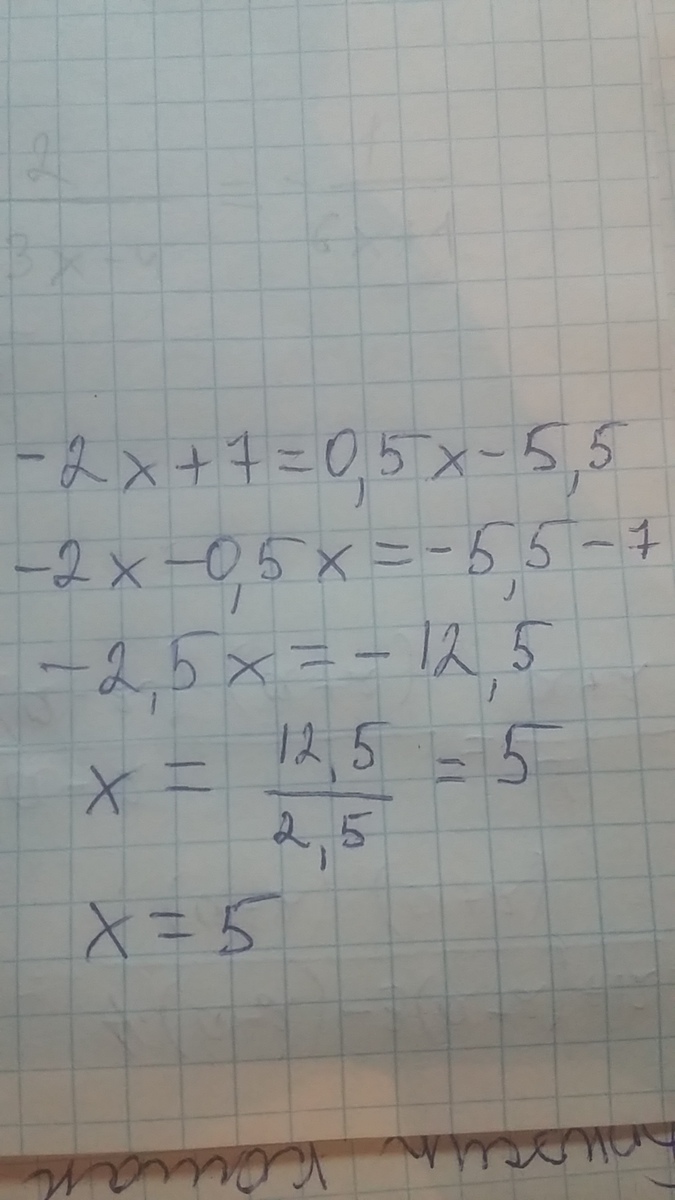 -2x+7=0,5x-5,5
-2x-0,5x=-5,5-7
-2,5x=-12,5
x = 12,5/2,5 = 5
x=5